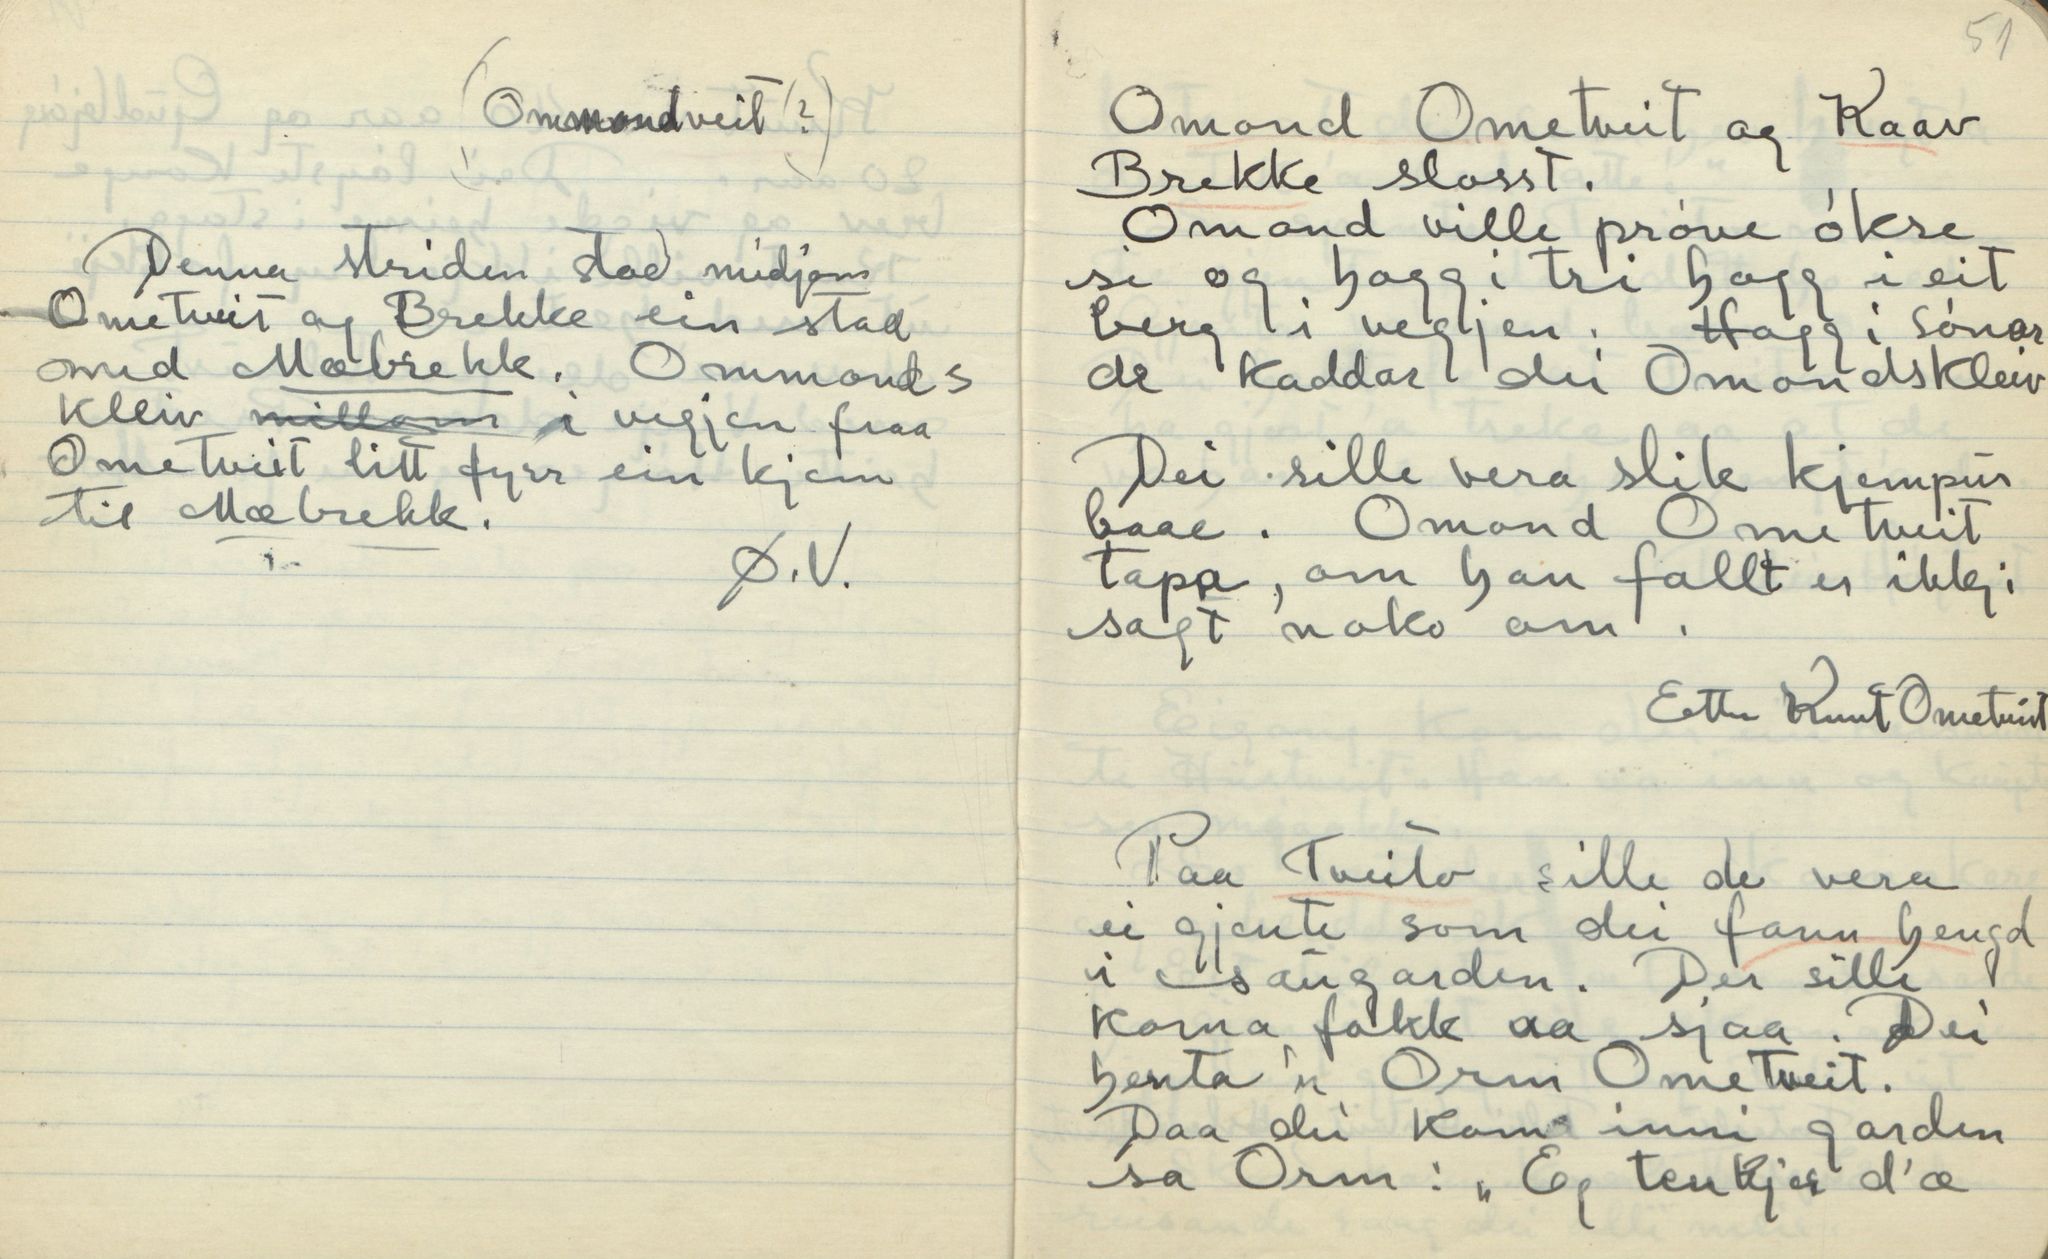 (Ommondveit?)
Denna striden stod midjom
Ometveit og Brekke ein stad
med Mæbrekk. Ommonds
kleiv millom i vegjen fraa
Ometveit litt fyrr ein kjem
til Mæbrekk.
Ø.V.
51
Omond Ometveit og Kaav
Brekke slosst.
Omond ville próve ókse
si og hoggi tri hogg i eit
berg i vegjen. Hoggi sónar
de kaddar dei Omondskleiv
Dei sille vera slik kjempur
baae. Omond Ometveit
tapa, om han fallt er ikkji
sagt noko om.
Ette Knut Ometveit
Paa Tveito sille de vera
ei gjente som dei fann hengd
i saugarden. Der sille
koma fokk aa sjaa. Dei
henta 'n Orm Ometveit.
Daa dei kom inni garden
sa Orm: „Eg tenkjer d'æ